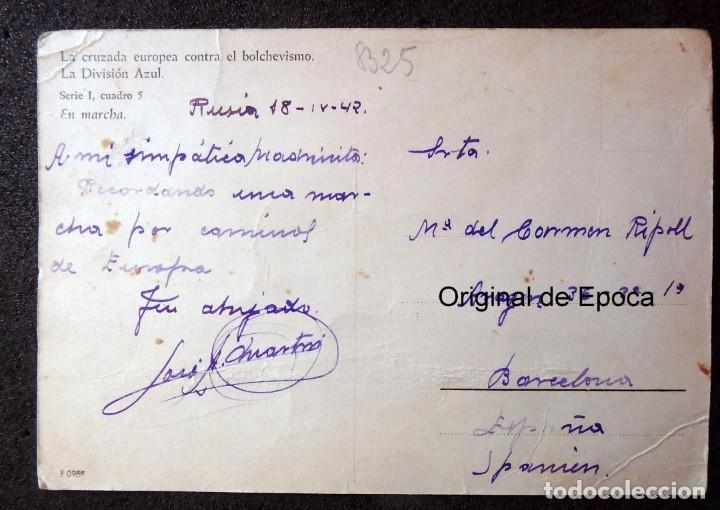 La cruzada europea contra el bolchevismo.
La División Azul.
Serie I, cuadro 5
En marcha.
8325
Rusia 18-IV-42.
A mi simpática Madrinita:
Recordando una mar-
cha por caminos
de Europa
Tu ahijado.
José A.
Srta.
Mª del Carmen Ripoll
Original de Epoca
Barcelona
España
Spanien.
todocoleccion.net